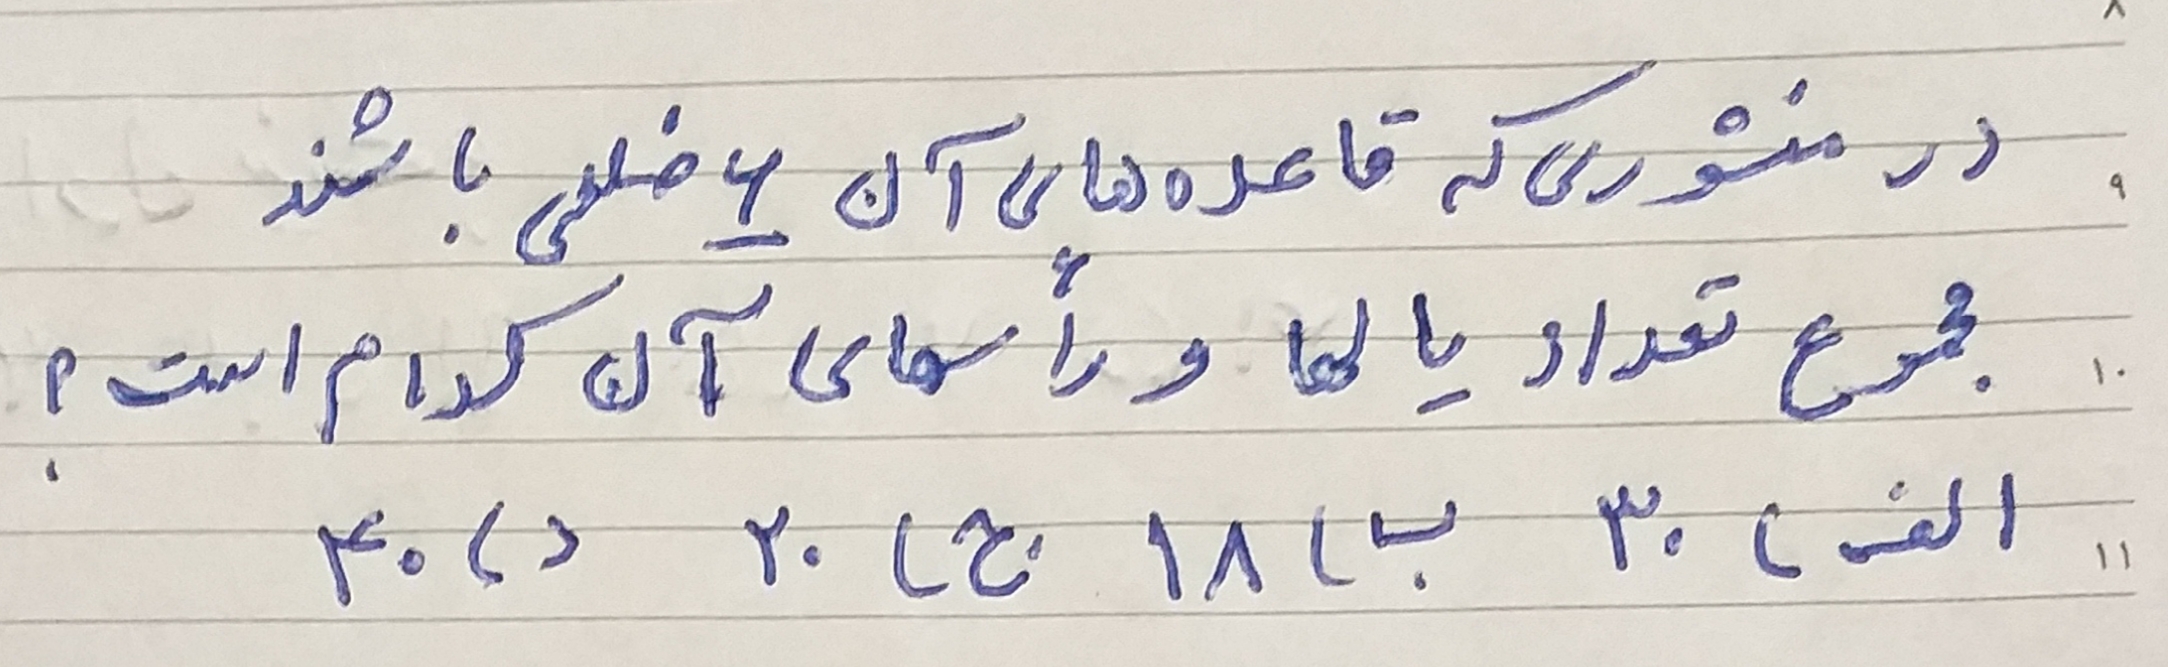 ۸
۹ در منشوری که قاعده‌های آن ۶ ضلعی باشند
۱۰ مجموع تعداد یالها و رأسهای آن کدام است؟
۱۱ الف) ۳۰ ب) ۱۸ ج) ۲۰ د) ۴۰